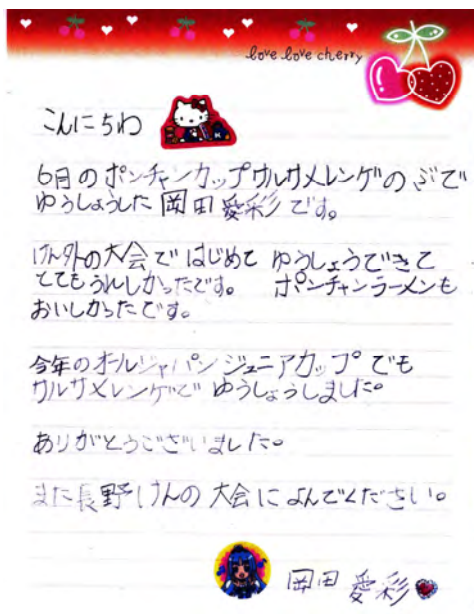 love love cherry
こんにちわ
6月のポンチャンカップサルサメレンゲのぶで
ゆうしょうした岡田愛彩です。
けん外の大会ではじめてゆうしょうできて
とてもうれしかったです。 ポンチャンラーメンも
おいしかったです。
今年のオールジャパンジュニアカップでも
サルサメレンゲでゆうしょうしました。
ありがとうございました。
また長野けんの大会によんでください。
岡田愛彩